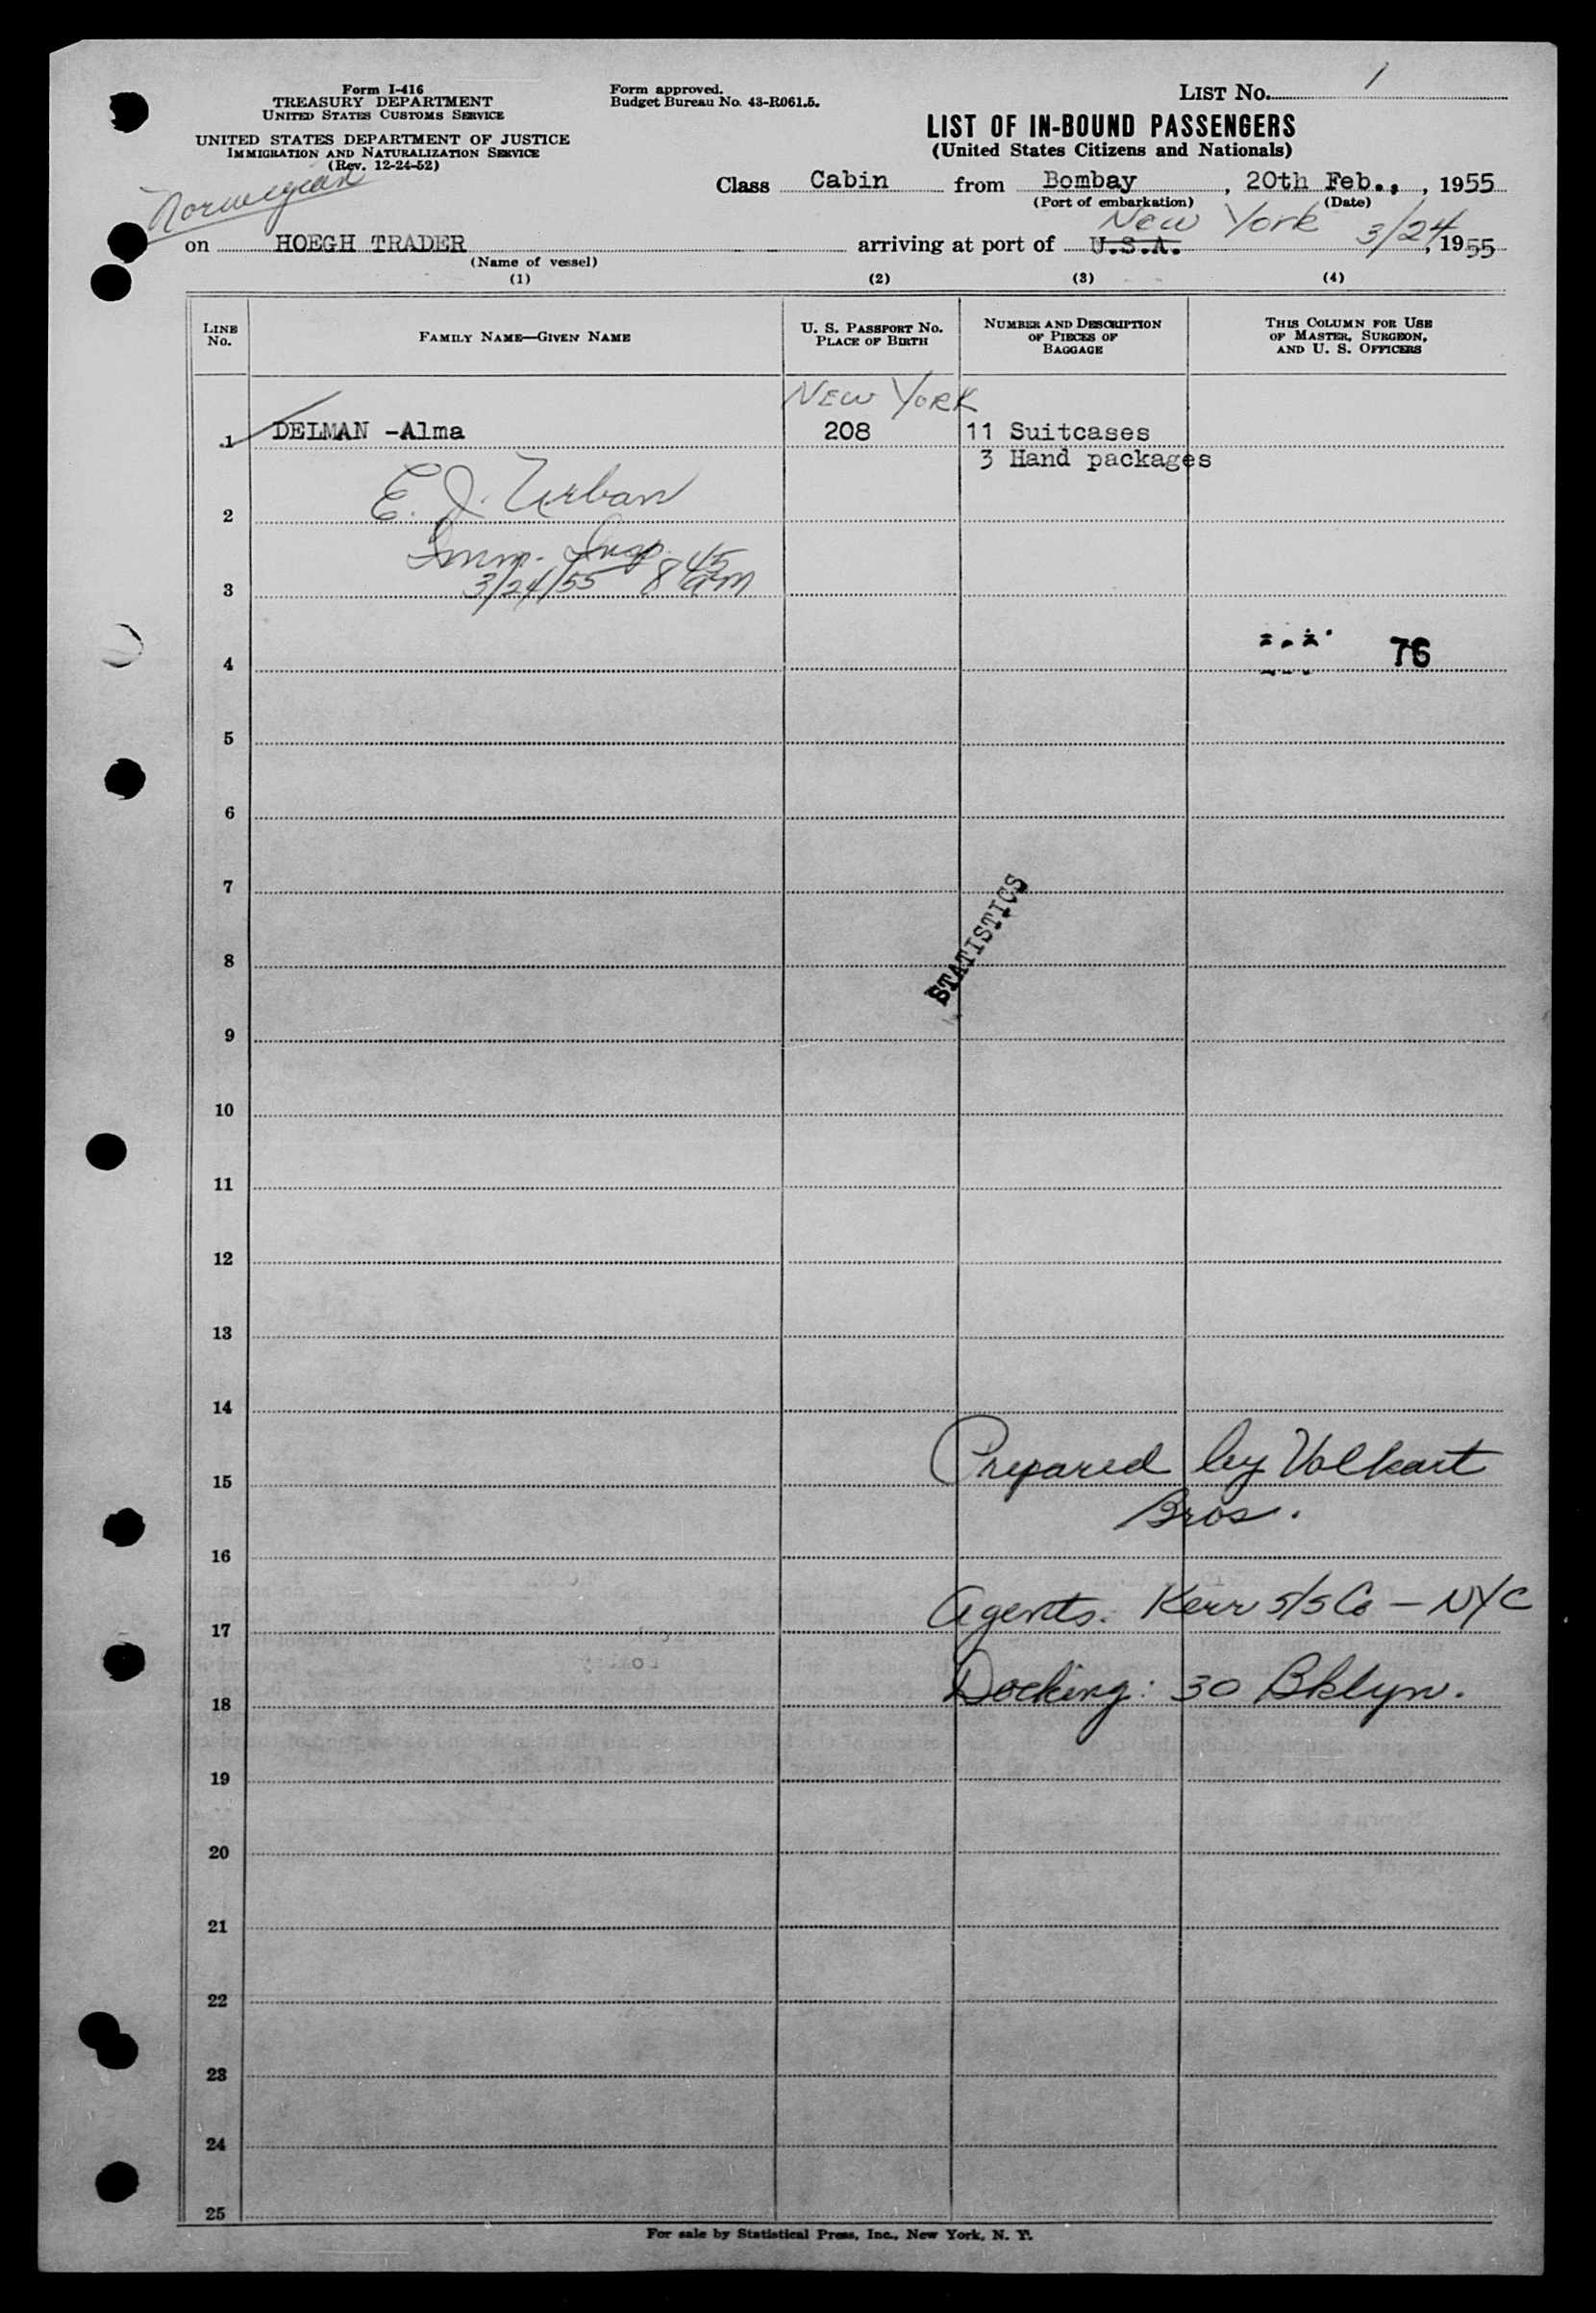 Form I-416
TREASURY DEPARTMENT
UNITED STATES CUSTOMS SERVICE
UNITED STATES DEPARTMENT OF JUSTICE
IMMIGRATION AND NATURALIZATION SERVICE
(Rev. 12-24-52)
Form approved.
Budget Bureau No. 43-R061.5.
LIST No. 1
LIST OF IN-BOUND PASSENGERS
(United States Citizens and Nationals)
Norwegian
Class Cabin from Bombay, 20th Feb., , 1955
(Port of embarkation) (Date)
New York 3/24
on HOEGH TRADER arriving at port of U.S.A. , 1955
(Name of vessel)
(1) (2) (3) (4)
LINE No. FAMILY NAME—GIVEN NAME U. S. PASSPORT No. PLACE OF BIRTH NUMBER AND DESCRIPTION OF PIECES OF BAGGAGE THIS COLUMN FOR USE OF MASTER, SURGEON, AND U. S. OFFICERS
NEW YORK
1 DELMAN -Alma 208 11 Suitcases
3 Hand packages
E. J. Urban
2
Imm. Insp.
3/24/55 8 45 am
3
76
4
5
6
7
STATISTICS
8
9
10
11
12
13
14
Prepared by Volkart
15
Bros.
16
Agents: Kerr S/S Co — NYC
17
Docking: 30 Bklyn.
18
19
20
21
22
23
24
25
For sale by Statistical Press, Inc., New York, N. Y.